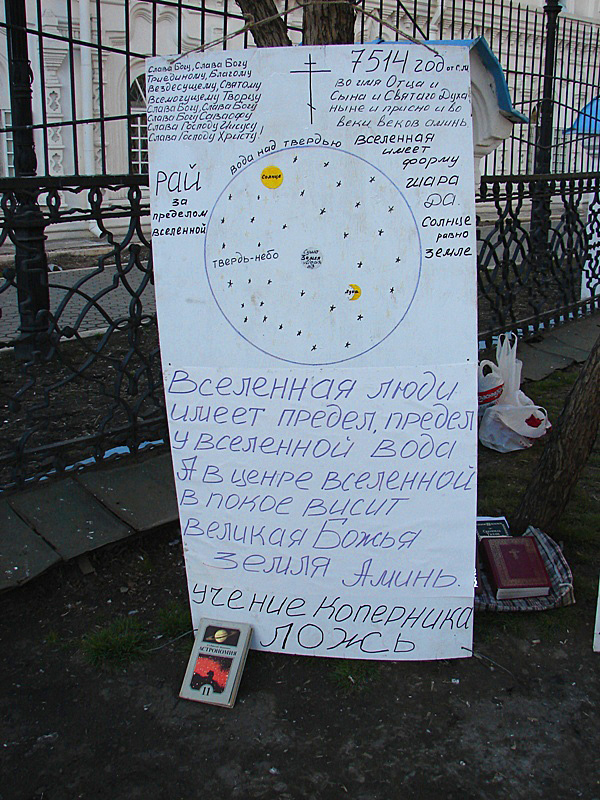 Слава Богу, Слава Богу
Триединому, Благому
Вездесущему, Святому
Всемогущему Творцу
Слава Богу, Слава Богу
Слава Богу Саваофу
Слава Господу Иисусу
Слава Господу Христу!
7514 год от С.М
Во имя Отца и
Сына и Святаго Духа,
ныне и присно и во
веки веков аминь
Вода над твердью
Вселенная
имеет
форму
шара
да.
Солнце
равно
Земле
РАЙ
за
пределом
вселенной
Солнце
Твердь-небо
Земля
Луна
Вселенная люди
имеет предел, предел
у вселенной вода
А в ценре вселенной
в покое висит
великая Божья
Земля Аминь.
учение Коперника
ЛОЖЬ
АСТРОНОМИЯ
11